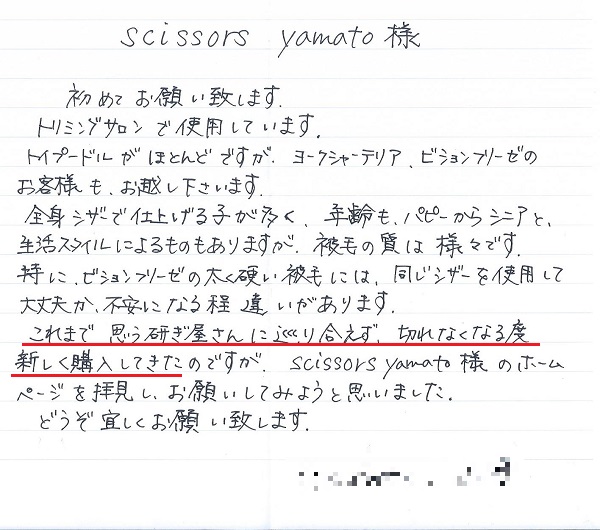 scissors yamato 様
初めてお願い致します.
トリミングサロンで使用しています.
トイプードルがほとんどですが、ヨークシャーテリア、ビションフリーゼの
お客様も、お越し下さいます.
全身シザーで仕上げる子が多く、年齢も、パピーからシニアと、
生活スタイルによるものもありますが、被毛の質は様々です.
特に、ビションフリーゼの太く硬い被毛には、同じシザーを使用して
大丈夫か、不安になる程違いがあります.
これまで思う研ぎ屋さんに巡り合えず、切れなくなる度
新しく購入してきたのですが、scissors yamato 様のホーム
ページを拝見し、お願いしてみようと思いました.
どうぞ宜しくお願い致します.